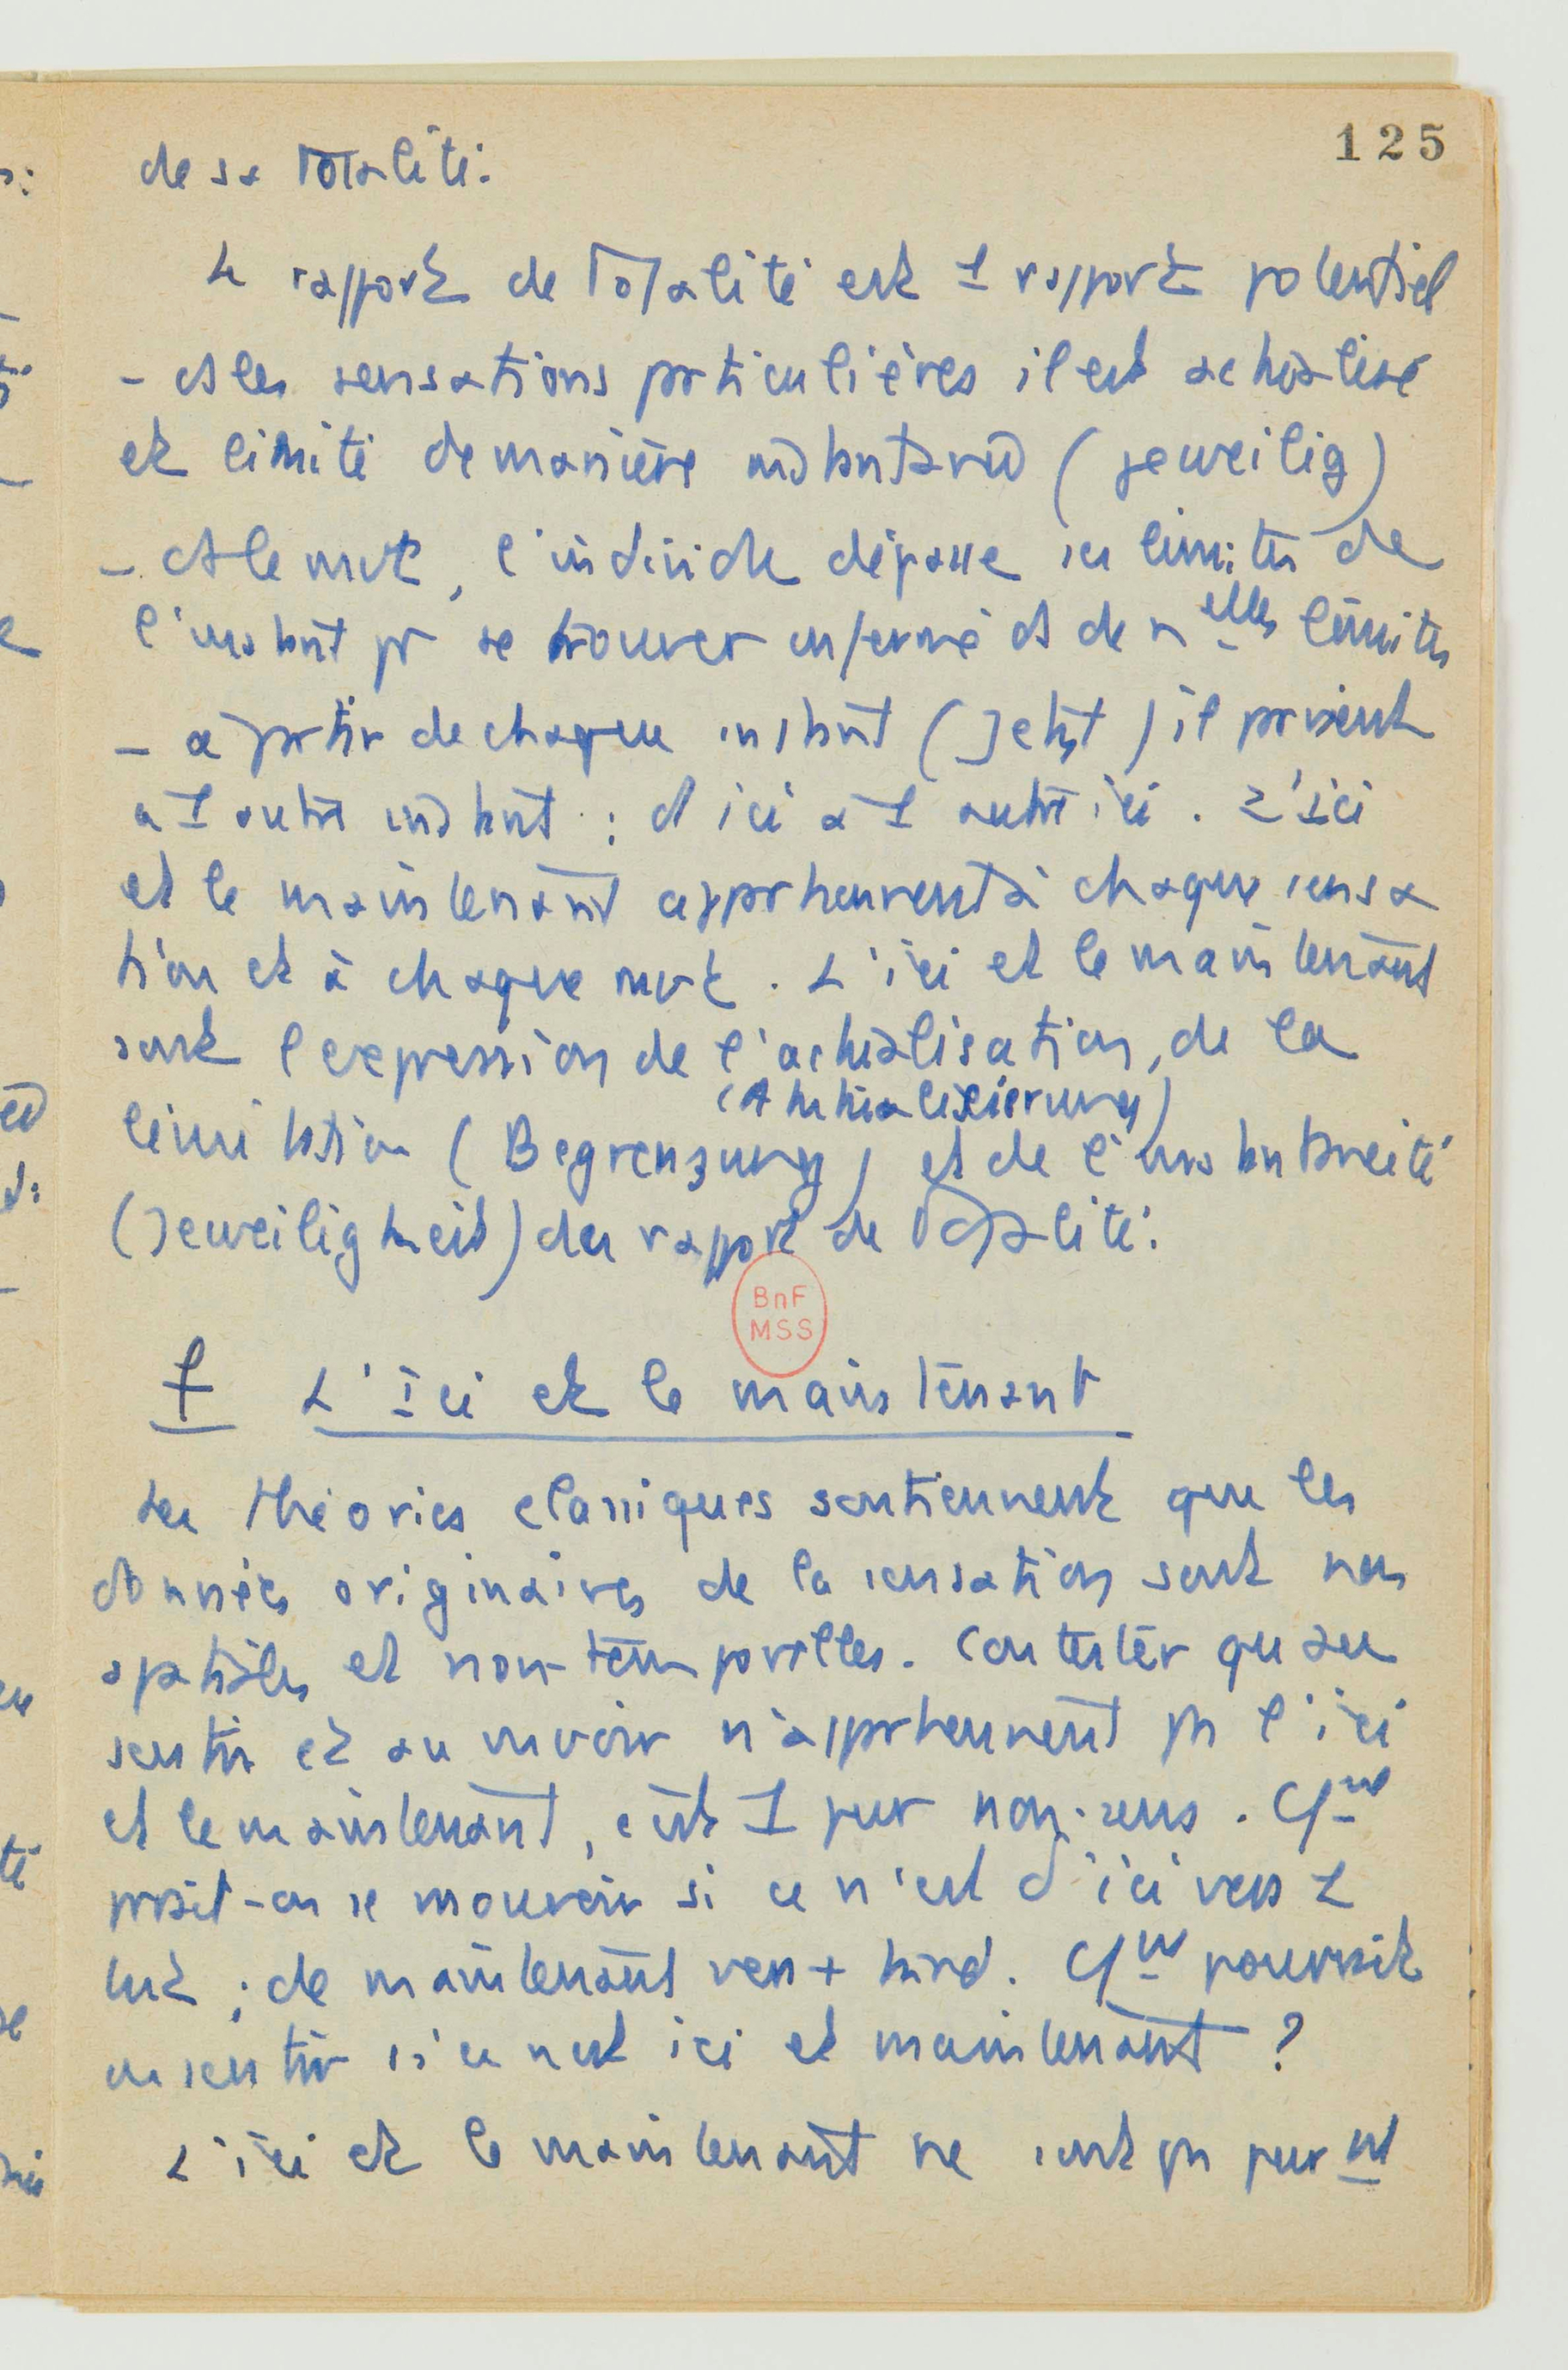 125
de sa totalité.
Le rapport de totalité est 1 rapport potentiel
- ds les sensations particulières il est actualisé
et limité de manière instantanée (jeweilig)
- ds le mvt, l'individu dépasse les limites de
l'instant pr se trouver enfermé ds de nelles limites
- a partir de chaque instant (Jetzt) il parvient
a 1 autre instant : d'ici à 1 autre ici. L'ici
et le maintenant appartiennent à chaque sensa
tion et à chaque mvt. L'ici et le maintenant
sont l'expression de l'actualisation, de la
(Aktualisierung)
limitation (Begrenzung) et de l'instantanéité
(Jeweiligkeit) des rapport de totalité.
BnF
MSS
f L'Ici et le maintenant
Les théories classiques soutiennent que les
données originaires de la sensation sont non
spatiales et non-temporelles. Contester qu'au
sentir et au mvoir n'appartiennent pas l'ici
et le maintenant, c'est 1 pur non-sens. Cment
prait-on se mouvoir si ce n'est d'ici vers
; de maintenant vers + tard. Cment pourrait
on sentir si ce n'est ici et maintenant ?
L'ici et le maintenant ne sont pas purmt